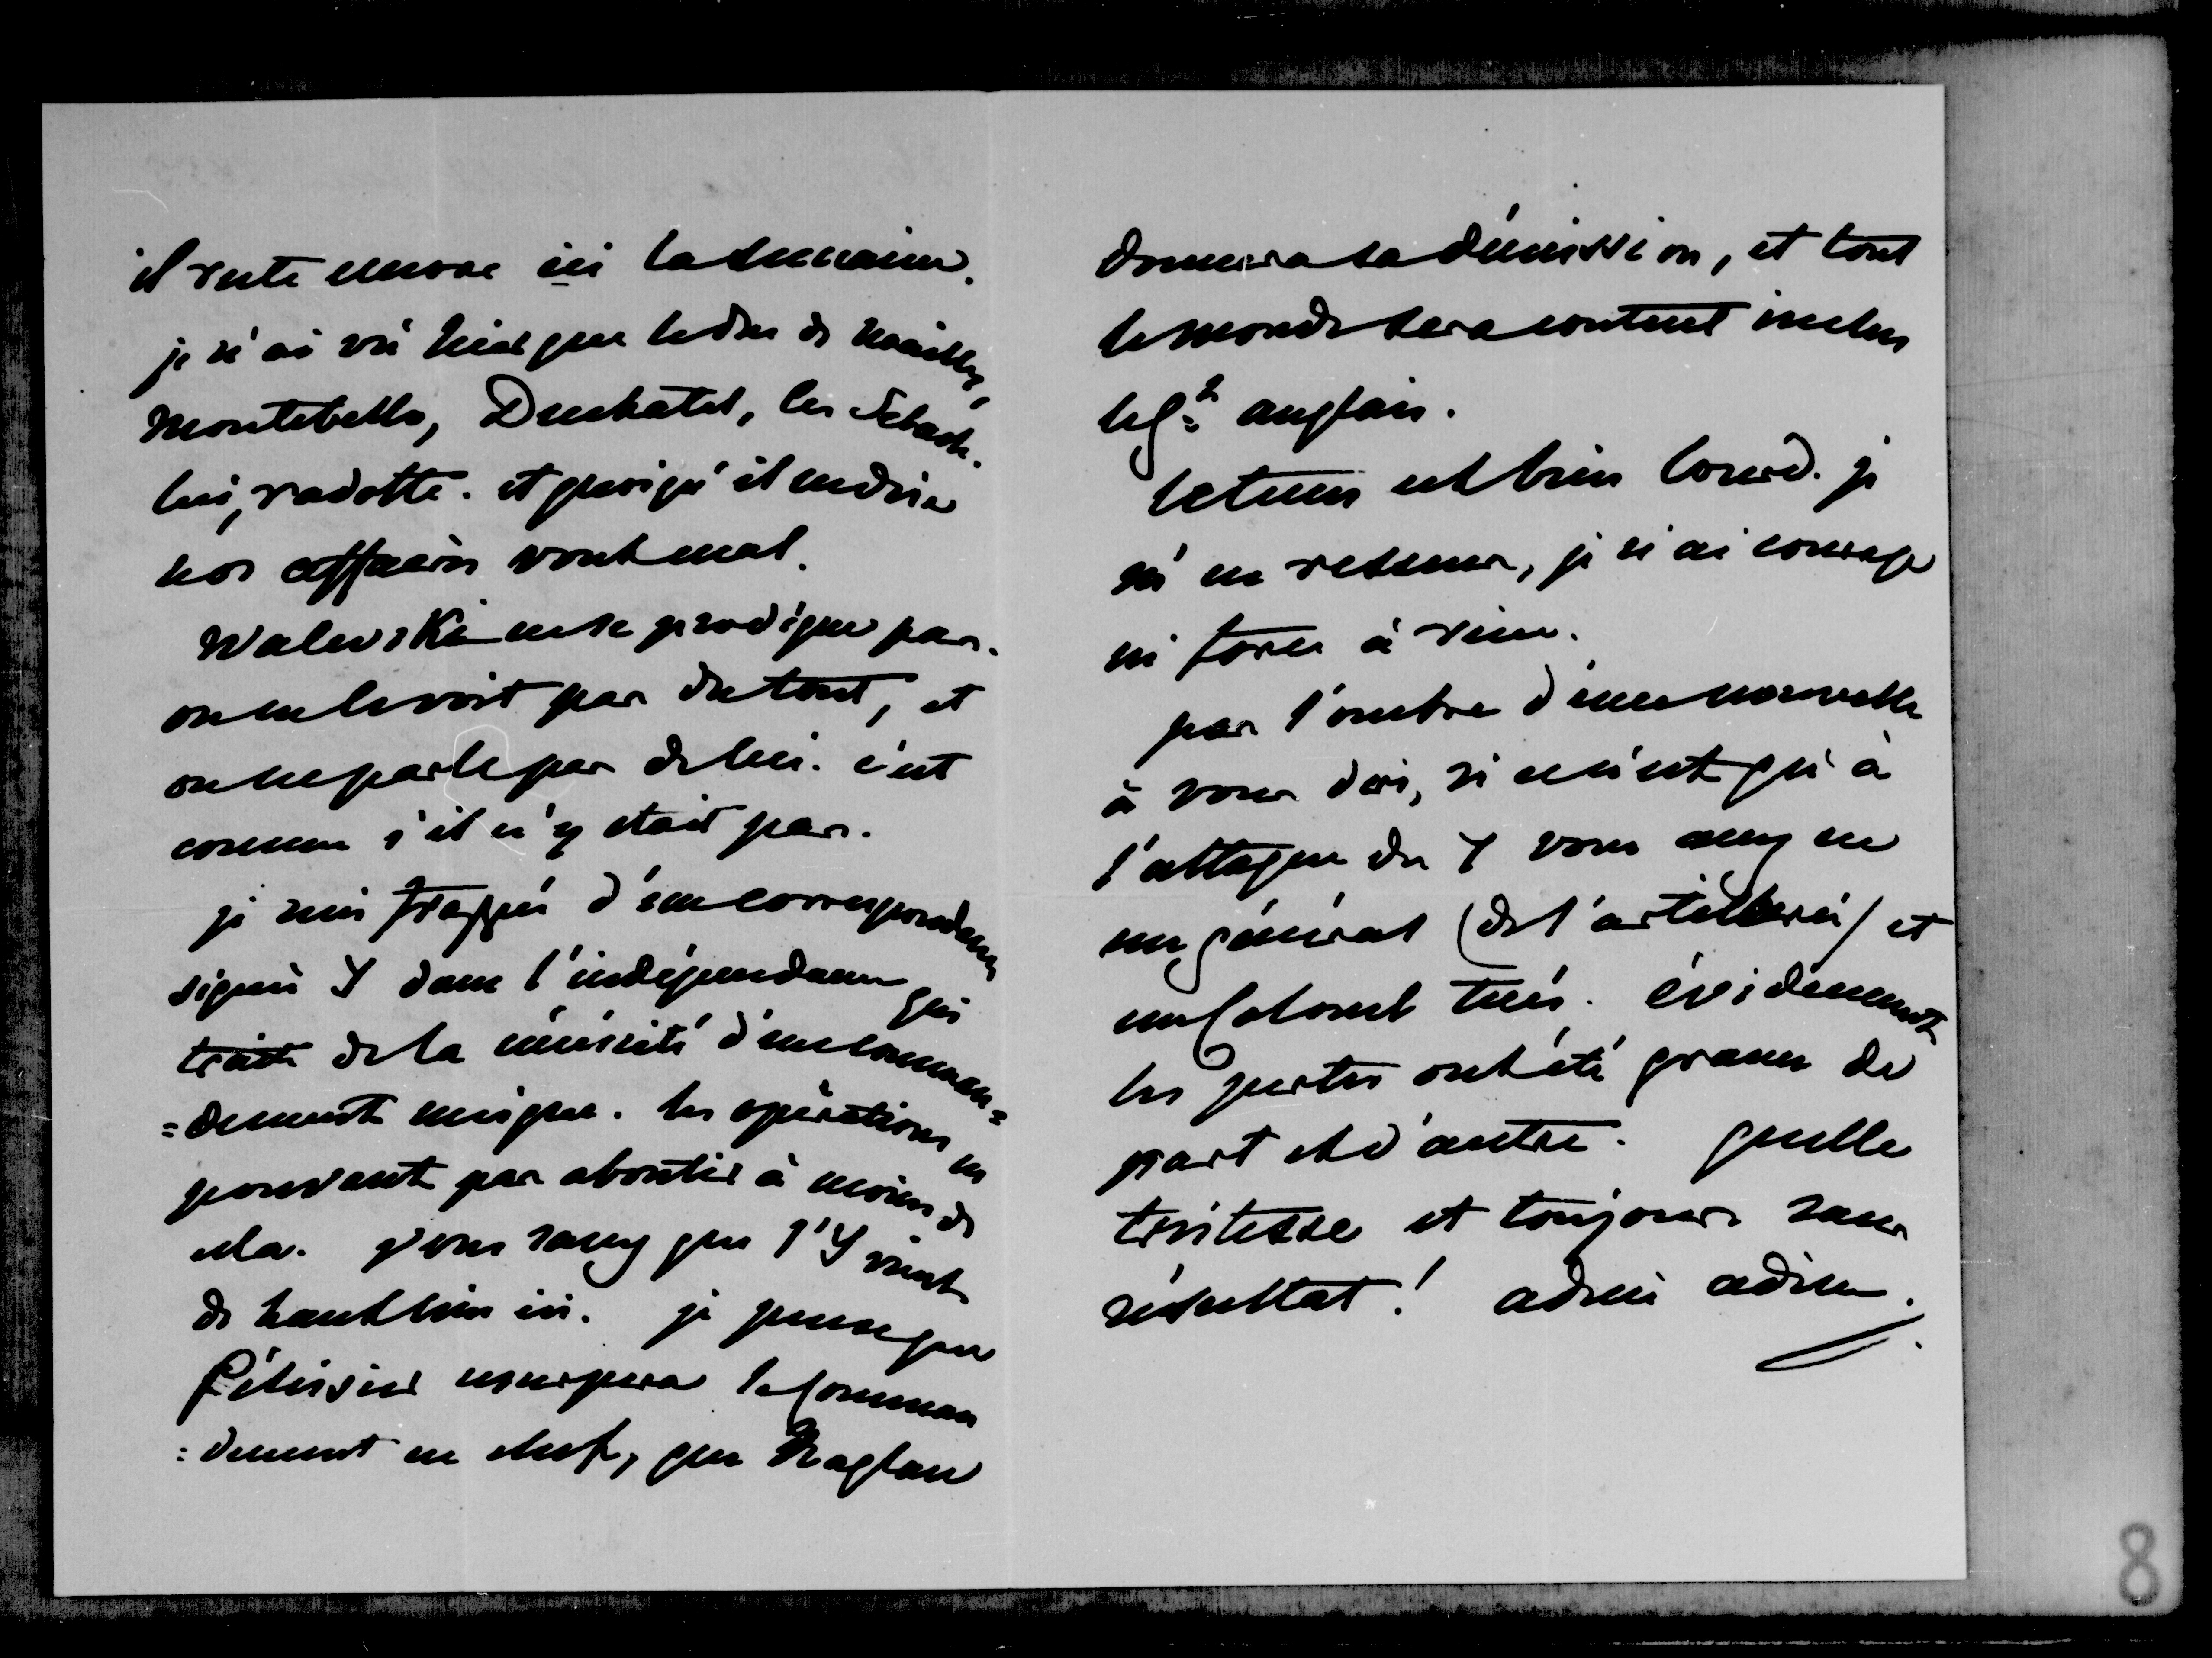 il reste encore ici la semaine.
je n'ai vu hier que le duc de Noailles,
Montebello, Duchatel, les Sebast.
lui, radotte. et quoiqu'il en dise
nos affaires vont mal.
Walewski ne se prodigue pas.
on ne le voit pas du tout, et
on ne parle pas de lui. c'est
comme s'il n'y etait pas.
je suis frappée d'une correspondance
signée Y dans l'indépendance qui
traite de la nécessité d'un comman=
=dement unique. les opérations ne
pouvant pas aboutir à moins de
cela. vous savez que l'Y vient
de haut lieu ici. je pense que
Pélissier usurpera le Comman
=dement en chef, que Raglan
donnera sa démission, et tout
le monde sera content inclus
le Gl anglais.
le tems est bien lourd. je
m'en ressens, je n'ai courage
ni force à rien.
pas l'ombre d'une nouvelle
à vous dire, si ce n'est qu'à
l'attaque du 7 vous avez eu
un général (de l'artillerie) et
un Colonel tués. évidemment
les pertes ont été graves de
part et d'autre. quelle
tristesse et toujours sans
résultat! adieu adieu.
8